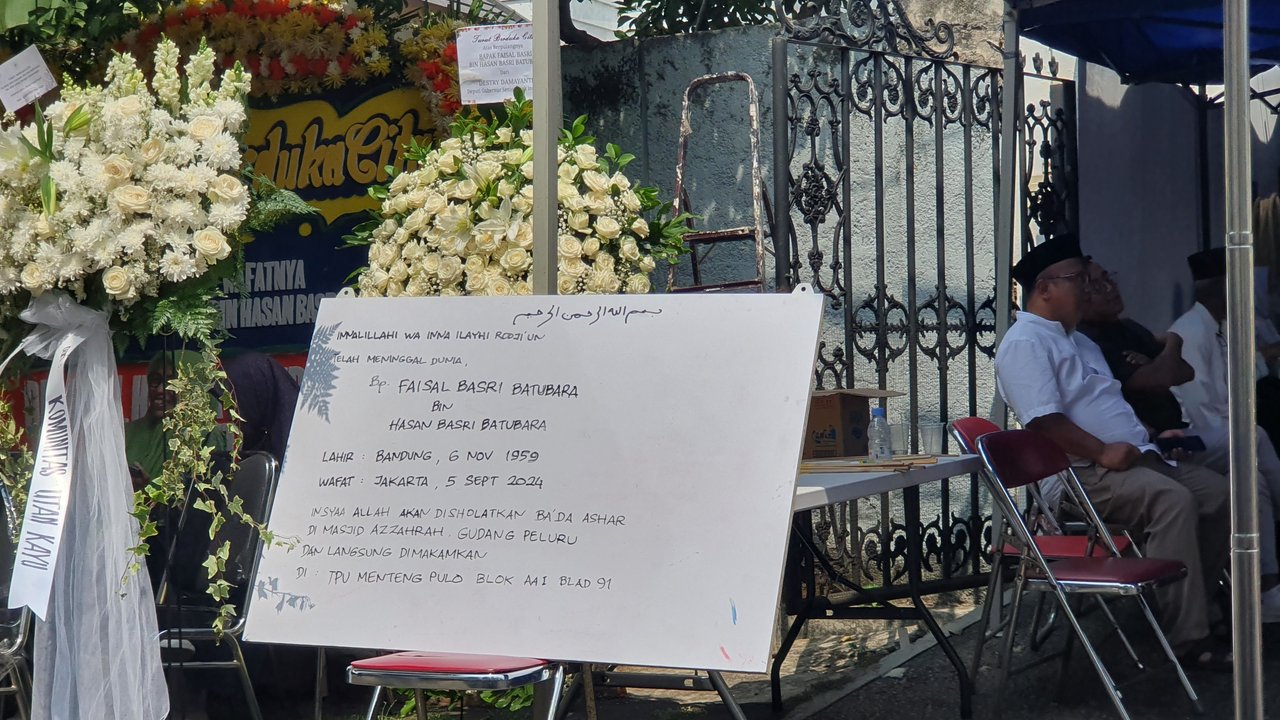 Turut Berduka Cita
Atas Berpulangnya
BAPAK FAISAL BASRI
BIN HASAN BASRI BATUBARA
Dari
DESTRY DAMAYANTI
Deputi Gubernur
Berduka Cita
WAFATNYA
BIN HASAN BASRI
KOMUNITAS UTAN KAYU
بسم الله الرحمن الرحيم
INNALILLAHI WA INNA ILAYHI RODJI'UN
TELAH MENINGGAL DUNIA,
Bp. FAISAL BASRI BATUBARA
BIN
HASAN BASRI BATUBARA
LAHIR : BANDUNG, 6 NOV 1959
WAFAT : JAKARTA, 5 SEPT 2024
INSYAA ALLAH AKAN DISHOLATKAN BA'DA ASHAR
DI MASJID AZZAHRAH. GUDANG PELURU
DAN LANGSUNG DIMAKAMKAN
DI : TPU MENTENG PULO BLOK AA I BLAD 91